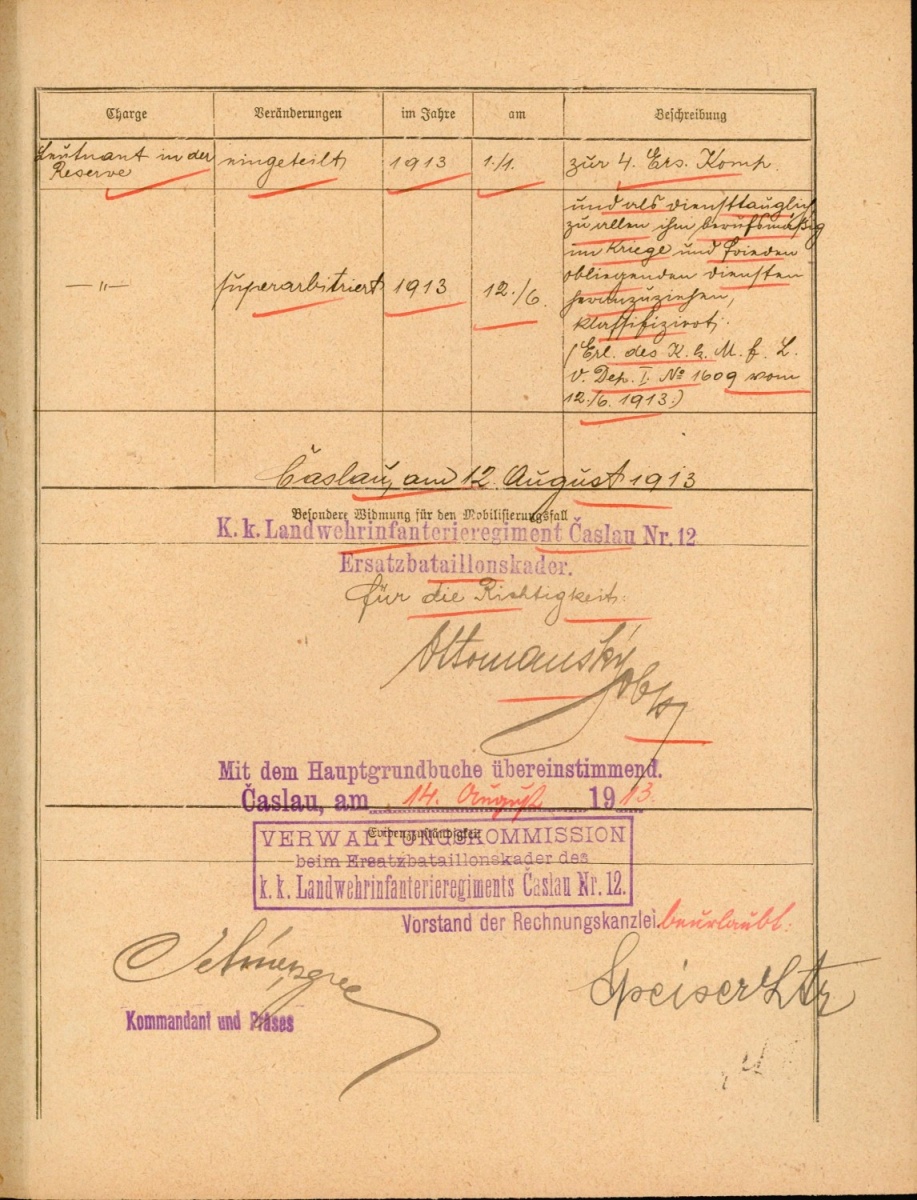 Charge Veränderungen im Jahre am Beschreibung
Leutnant in der Reserve eingeteilt 1913 1./1. zur 4. Ers. Komp.
und als diensttauglich
zu allen ihm berufsmäßig
im Kriege und Frieden
obliegenden diensten
—"— superarbitriert 1913 12./6. heranzuziehen,
klassifiziert.
(Erl. des K. k. M. f. L.
V. Dep. I. № 1609 vom
12./6. 1913.)
Časlau, am 12. August 1913
Besondere Widmung für den Mobilisierungsfall
K. k. Landwehrinfanterieregiment Časlau Nr. 12
Ersatzbataillonskader.
für die Richtigkeit:
Ottomanský
Mit dem Hauptgrundbuche übereinstimmend.
Časlau, am 14. August 1913.
Evidenzzuständigkeit
VERWALTUNGSKOMMISSION
beim Ersatzbataillonskader des
k. k. Landwehrinfanterieregiments Časlau Nr. 12.
Vorstand der Rechnungskanzlei beurlaubt:
Speiser
Kommandant und Präses